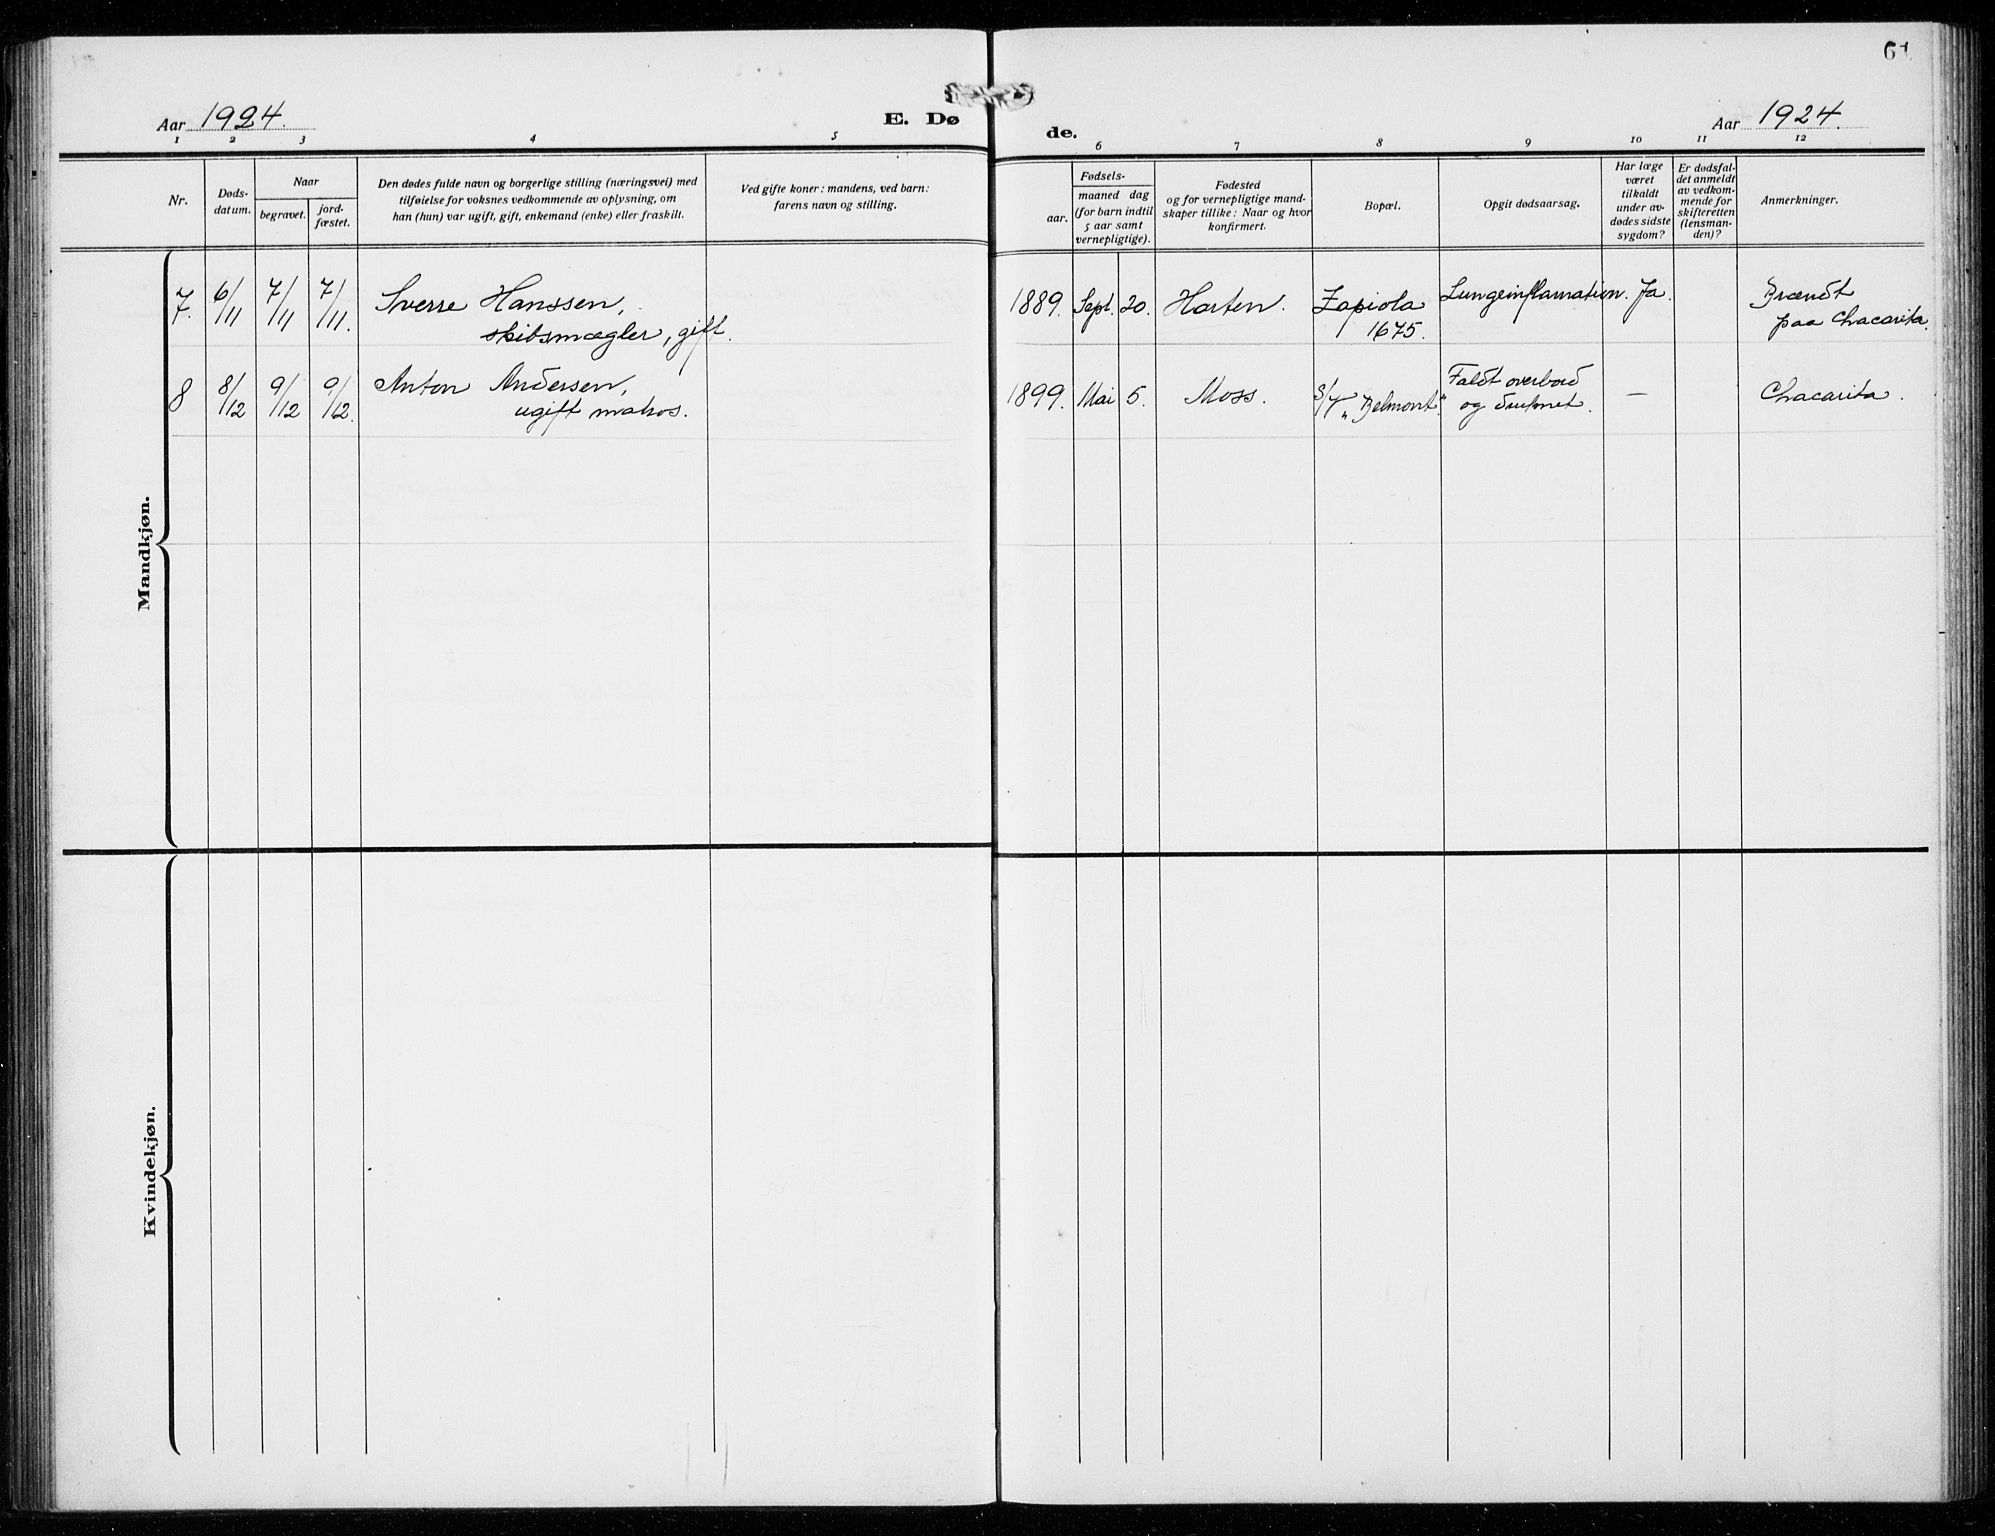 61
Aar 1924.
E. Dø
de.
Aar 1924.
1 2 3 4 5 6 7 8 9 10 11 12
Nr.
Døds-
datum.
Naar
begravet.
jord-
fæstet.
Den dødes fulde navn og borgerlige stilling (næringsvei) med
tilføielse for voksnes vedkommende av oplysning, om
han (hun) var ugift, gift, enkemand (enke) eller fraskilt.
Ved gifte koner: mandens, ved barn:
farens navn og stilling.
Fødsels-
aar.
maaned dag
(for barn indtil
5 aar samt
vernepligtige).
Fødested
og for vernepligtige mand-
skaper tillike: Naar og hvor
konfirmert.
Bopæl.
Opgit dødsaarsag.
Har læge
været
tilkaldt
under av-
dødes sidste
sygdom?
Er dødsfal-
det anmeldt
av vedkom-
mende for
skifteretten
(lensman-
den)?
Anmerkninger.
Mandkjøn.
7. 6/11 7/11 7/11. Sverre Hanssen,
skibsmægler, gift.
1889. Sept. 20. Horten. Zapiola
1675.
Lungeinflamation. Ja.
Brændt
paa Chacarita.
8 8/12 9/12 9/12. Anton Andersen,
ugift matros.
1899. Mai 5. Moss. S/S „Belmont“
Faldt overbord
og druknet.
— Chacarita.
Kvindekjøn.